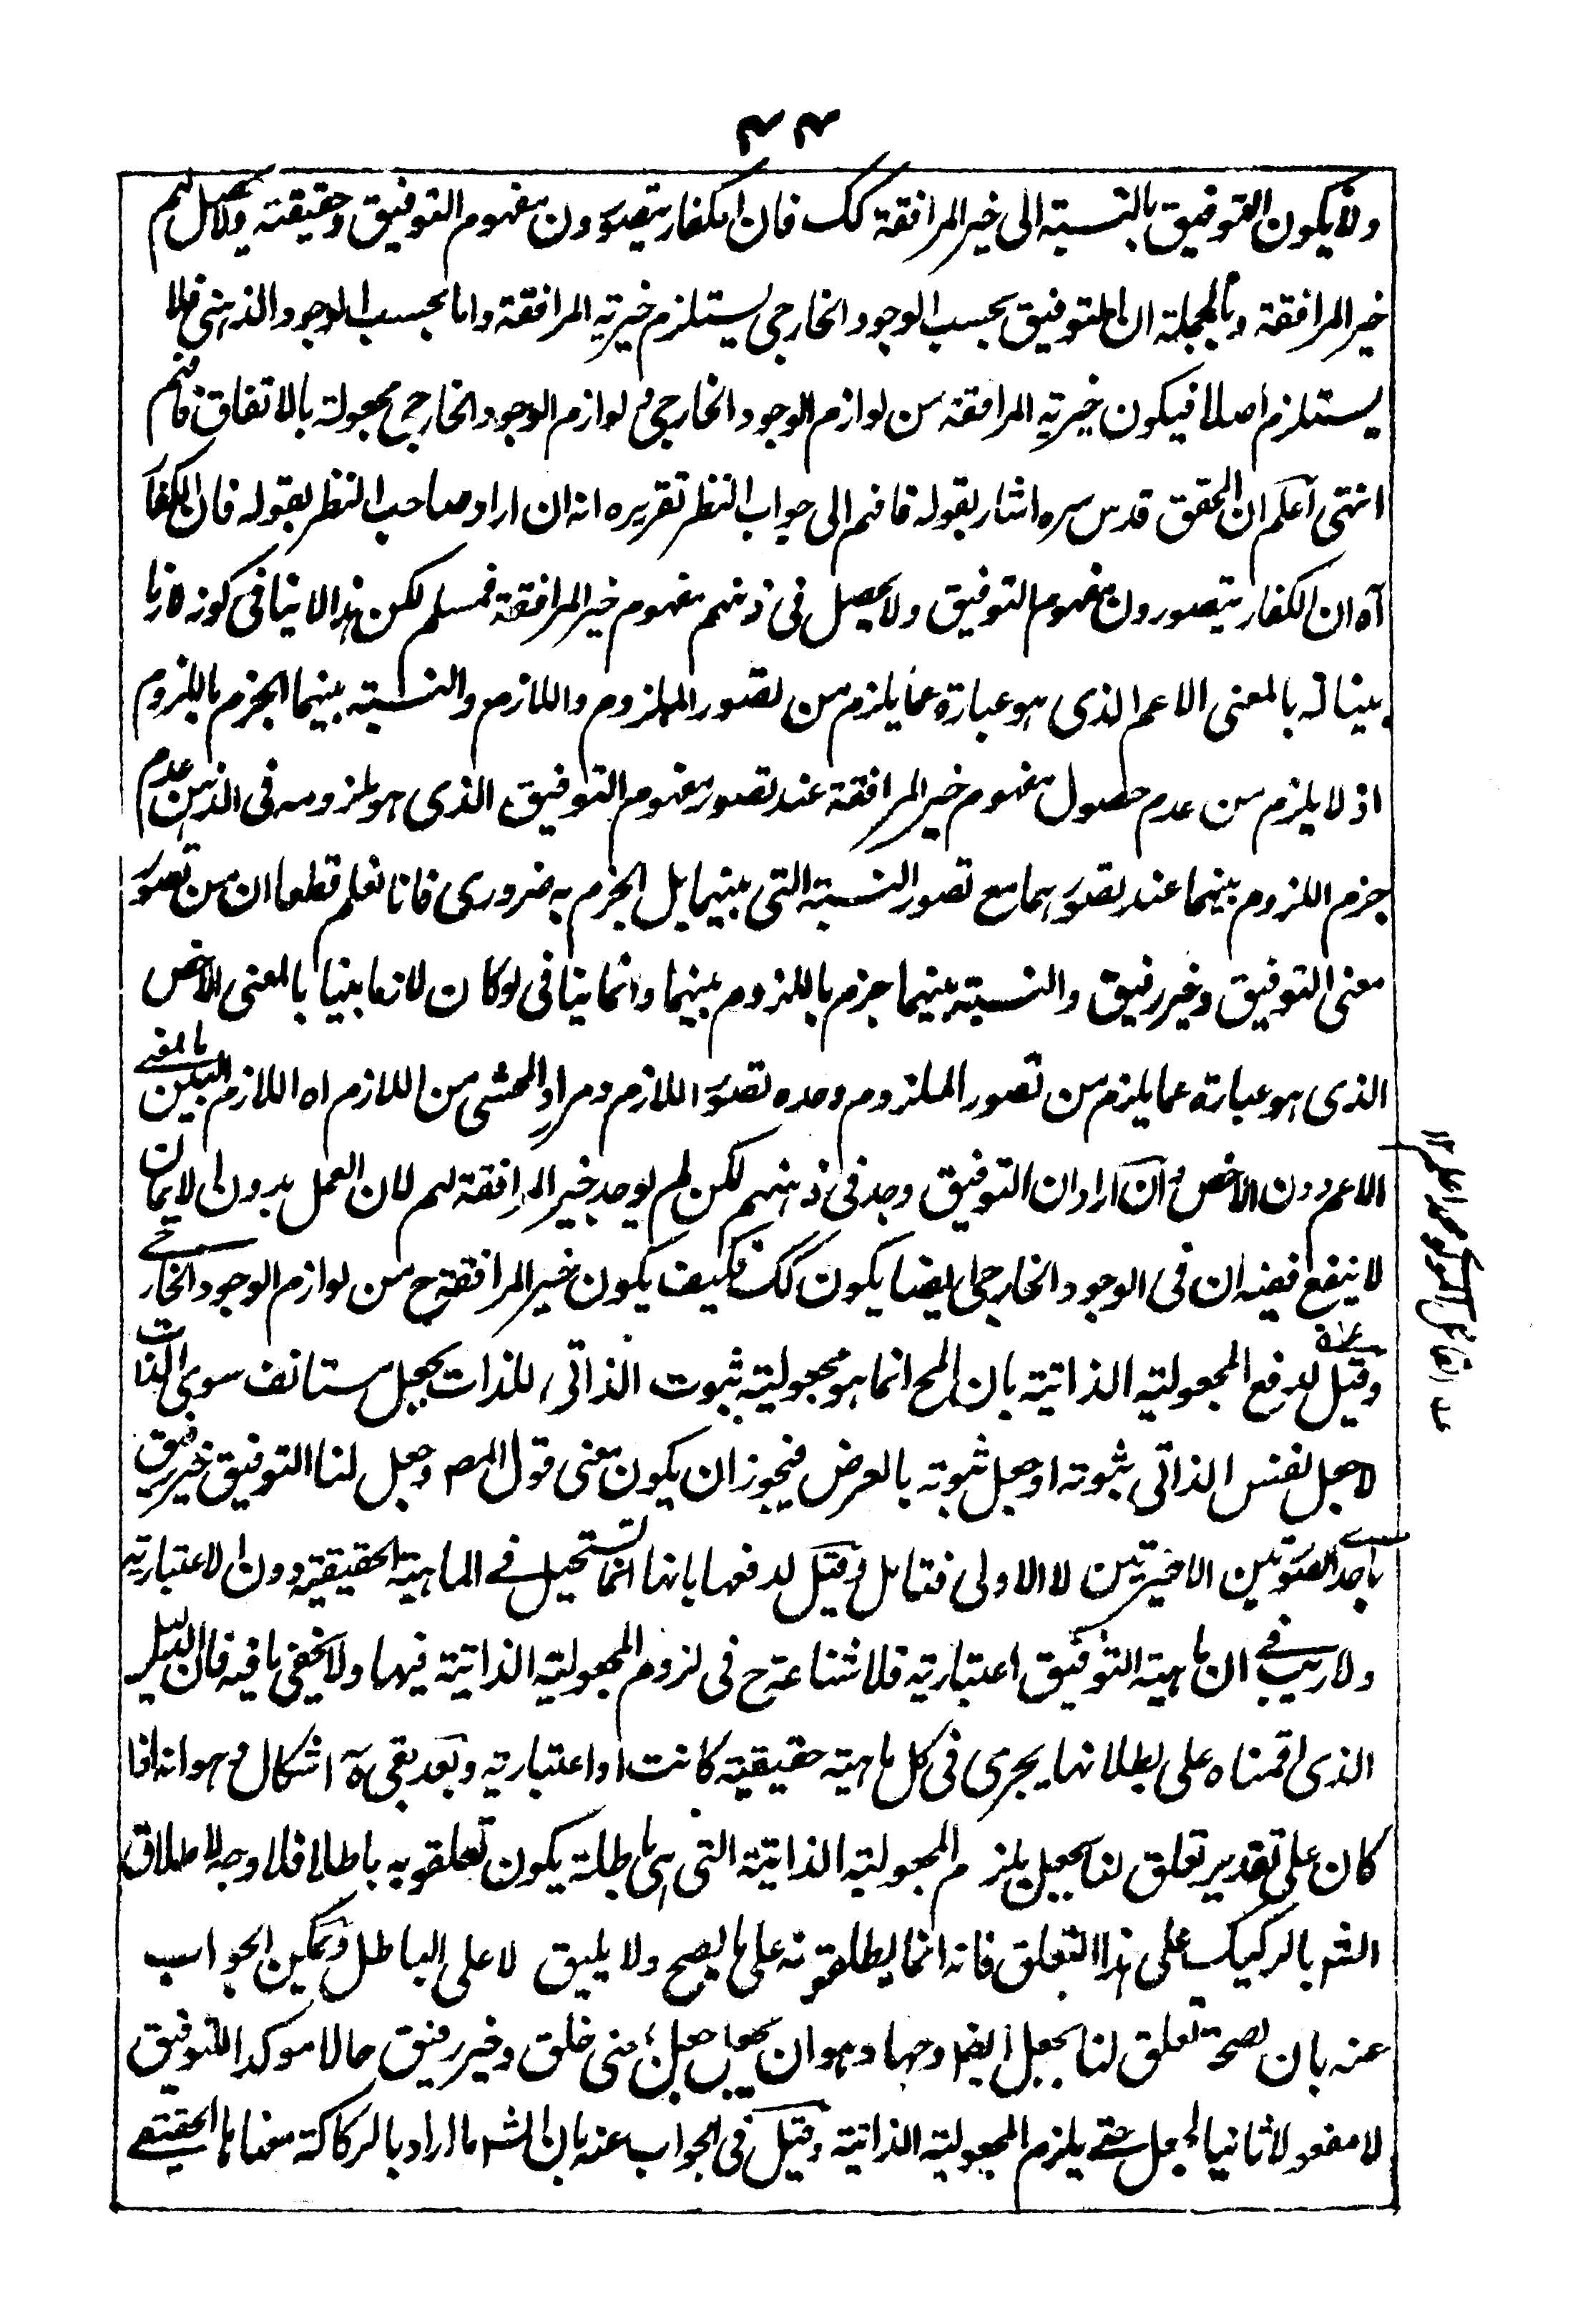 ۴۴
ولا يكون التوفيق بالنسبة الى خير المرافقة كك فان الكفار يتصورون مفهوم التوفيق وحقيقته ولا يحصل لهم
خير المرافقة وبالجملة ان التوفيق بحسب الوجود الخارجي يستلزم خيرية المرافقة واما بحسب الوجود الذهني فلا
يستلزم اصلا فيكون خيرية المرافقة من لوازم الوجود الخارجي ولوازم الوجود الخارجي مجعولة بالاتفاق فافهم
انتهى اعلم ان المحقق قدس سره اشار بقوله فافهم الى جواب النظر تقريره انه ان اراد صاحب النظر بقوله فان الكفار
آه ان الكفار يتصورون مفهوم التوفيق ولا يحصل في ذهنهم مفهوم خير المرافقة فمسلم لكن هذا لا ينافى كونه لازما
بينا له بالمعنى الاعم الذى هو عبارة عما يلزم من تصور الملزوم واللازم والنسبة بينهما الجزم باللزوم
اذ لا يلزم من عدم حصول مفهوم خير المرافقة عند تصور مفهوم التوفيق الذى هو ملزومه فى الذهن عدم
جزم اللزوم بينهما عند تصورهما مع تصور النسبة التى بينهما بل الجزم به ضرورى فانا نعلم قطعا ان من تصور
معنى التوفيق وخير رفيق والنسبة بينهما جزم باللزوم بينهما وانما ينافى لو كان لازما بينا بالمعنى الاخص
الذى هو عبارة عما يلزم من تصور الملزوم وحده تصور اللازم ومراد المحشى من اللازم اه اللازم البين بالمعنى
الاعم دون الاخص وان اراد ان التوفيق وجد فى ذهنهم لكن لم يوجد خير المرافقة لهم لان العمل بدون الايمان
لا ينفع ففيه ان فى الوجود الخارجى ايضا يكون كك فكيف يكون خير المرافقة ح من لوازم الوجود الخارجى
وقيل لدفع المجعولية الذاتية بان المح انما هو مجعولية ثبوت الذاتى للذات بجعل مستانف سوى الذات
لا جعل نفس الذاتى ثبوته او جعل ثبوته بالعرض فيجوز ان يكون معنى قول المص وجعل لنا التوفيق خير رفيق
باحد الصورتين الاخيرتين لا الاولى فتامل وقيل لدفعها بانها انما تستحيل فى الماهية الحقيقية دون الاعتبارية
ولا ريب فى ان ماهية التوفيق اعتبارية فلا شناعة ح فى لزوم المجعولية الذاتية فيها ولا يخفى ما فيه فان الدليل
الذى اقمناه على بطلانها يجرى فى كل ماهية حقيقية كانت او اعتبارية وبعد بقى ه اشكال وهو انه اذا
كان على تقدير تعلق لنا بجعل يلزم المجعولية الذاتية التى هى باطلة يكون تعلقه به باطلا فلا وجه لاطلاق
الش بالركيك على هذا التعلق فانه انما يطلقونه على ما يصح ولا يليق لا على الباطل ويمكن الجواب
عنه بان لصحة تعلق لنا بجعل ايضا وجها وهو ان جعل بمعنى خلق وخير رفيق حالا موكدا للتوفيق
لا مفعولا ثانيا لجعل حتى يلزم المجعولية الذاتية وقيل فى الجواب عنه بان الش ما اراد بالركاكة معناها الحقيقى